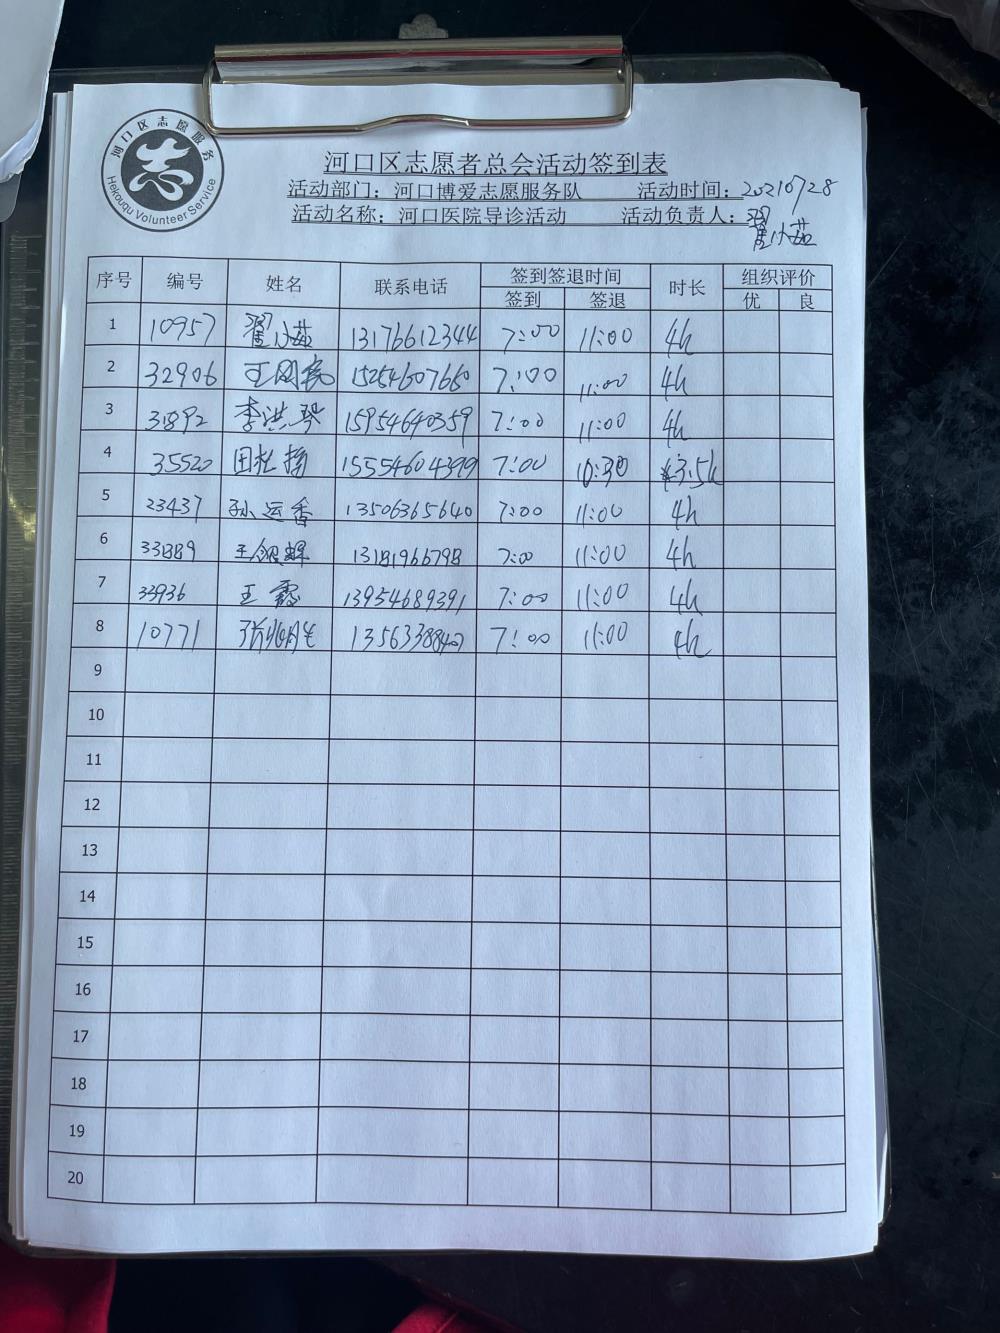 河口区志愿服务
志
Hekouqu Volunteer Service
河口区志愿者总会活动签到表
活动部门：河口博爱志愿服务队 活动时间：20210728
活动名称：河口医院导诊活动 活动负责人：翟小茹
序号 编号 姓名 联系电话 签到签退时间 时长 组织评价
签到 签退 优 良
1 10957 翟小茹 13176612344 7:00 11:00 4h
2 32906 15254607660 7:00 11:00 4h
3 31892 李洪琴 15954640359 7:00 11:00 4h
4 35520 15554604399 7:00 10:30 3.5h
5 23437 孙运香 13506365640 7:00 11:00 4h
6 33889 13181966798 7:00 11:00 4h
7 33936 王霞 13954689391 7:00 11:00 4h
8 10771 7:00 11:00 4h
9
10
11
12
13
14
15
16
17
18
19
20